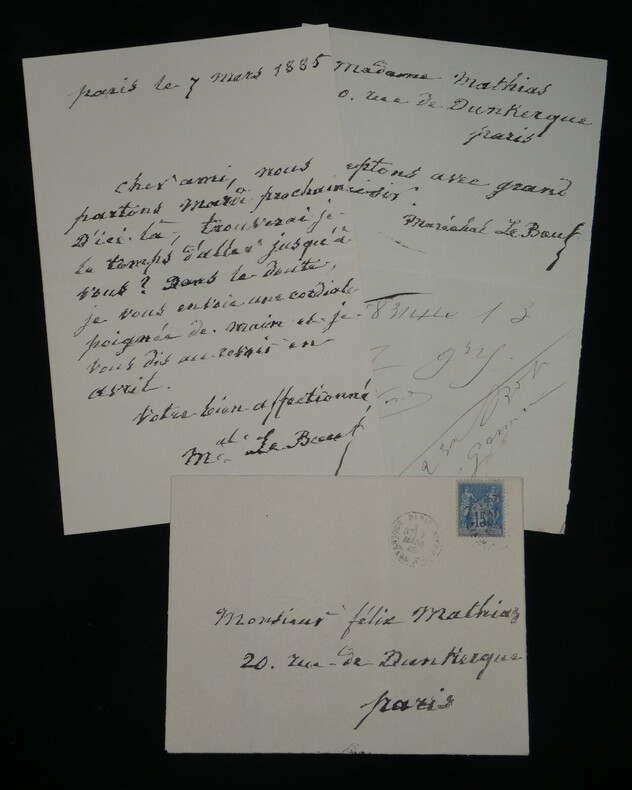 Paris le 7 Mars 1885
Cher ami, nous
partons Mardi prochain
D'ici là, trouverai je
le temps d'aller jusqu'à
vous? Dans le doute,
je vous envoie une cordiale
poignée de main et je
vous dis au revoir en
avril.
Votre bien affectionné
Mal Le Bœuf
Madame Mathias
0. rue de Dunkerque
Paris
eptons avec grand
isir.
Maréchal Le Bœuf
13
15
Monsieur félix Mathias
20. rue de Dunkerque
Paris